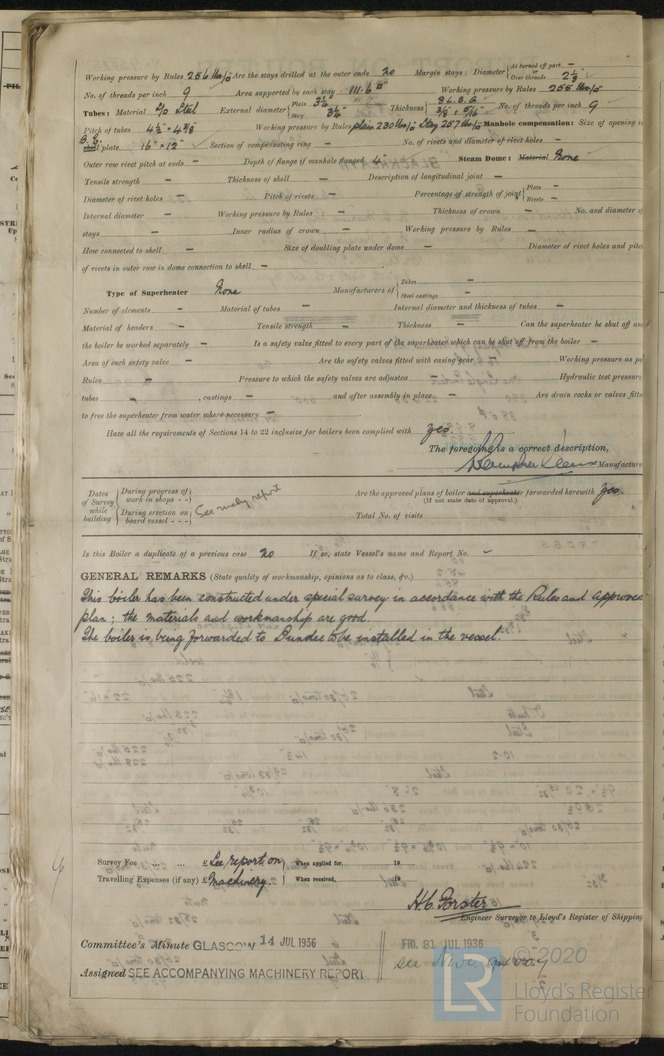 Working pressure by Rules 256 lbs/□" Are the stays drilled at the outer ends no Margin stays: Diameter { At turned off part, — or Over threads 2 1/8"
No. of threads per inch 9 Area supported by each stay 111.6 □" Working pressure by Rules 255 lbs/□"
Tubes: Material Steel External diameter { Plain 3 1/2" Stay 3 1/2" Thickness { 8 L.S.G. 3/8" 5/16" No. of threads per inch 9
Pitch of tubes 4 1/2" × 4 3/8 Working pressure by Rules plain 230 lbs/□" Stay 257 lbs/□" Manhole compensation: Size of opening i
plate 16" × 12" Section of compensating ring — No. of rivets and diameter of rivet holes —
Outer row rivet pitch at ends — Depth of flange if manhole flanged 4 Steam Dome: Material None
Tensile strength — Thickness of shell — Description of longitudinal joint —
Diameter of rivet holes — Pitch of rivets — Percentage of strength of joint { Plate — Rivets —
Internal diameter — Working pressure by Rules — Thickness of crown — No. and diameter of
stays — Inner radius of crown — Working pressure by Rules —
How connected to shell — Size of doubling plate under dome — Diameter of rivet holes and pitc
of rivets in outer row in dome connection to shell —
Type of Superheater None Manufacturers of { Tubes — Steel castings —
Number of elements — Material of tubes — Internal diameter and thickness of tubes —
Material of headers — Tensile strength — Thickness — Can the superheater be shut off an
the boiler be worked separately — Is a safety valve fitted to every part of the superheater which can be shut off from the boiler —
Area of each safety valve — Are the safety valves fitted with easing gear — Working pressure as pe
Rules — Pressure to which the safety valves are adjusted — Hydraulic test pressure
tubes — , castings — and after assembly in place — Are drain cocks or valves fitte
to free the superheater from water where necessary —
Have all the requirements of Sections 14 to 22 inclusive for boilers been complied with Yes.
The foregoing is a correct description,
Manufacture
Dates of Survey while building { During progress of work in shops - - } { During erection on board vessel - - - } See m/cy report
Are the approved plans of boiler and superheater forwarded herewith Yes.
(If not state date of approval.)
Total No. of visits
Is this Boiler a duplicate of a previous case no If so, state Vessel's name and Report No. —
GENERAL REMARKS (State quality of workmanship, opinions as to class, &c.)
This boiler has been constructed under special survey in accordance with the Rules and approved
plan; the materials and workmanship are good.
The boiler is being forwarded to Dundee to be installed in the vessel.
Survey Fee ... ... £ See report on } When applied for, 19
Travelling Expenses (if any) £ Machinery } When received, 19
H.C. Forster
Engineer Surveyor to Lloyd's Register of Shipping
Committee's Minute GLASGOW 14 JUL 1936 FRI. 31 JUL 1936
Assigned SEE ACCOMPANYING MACHINERY REPORT See
© 2020
LR Lloyd's Register
Foundation